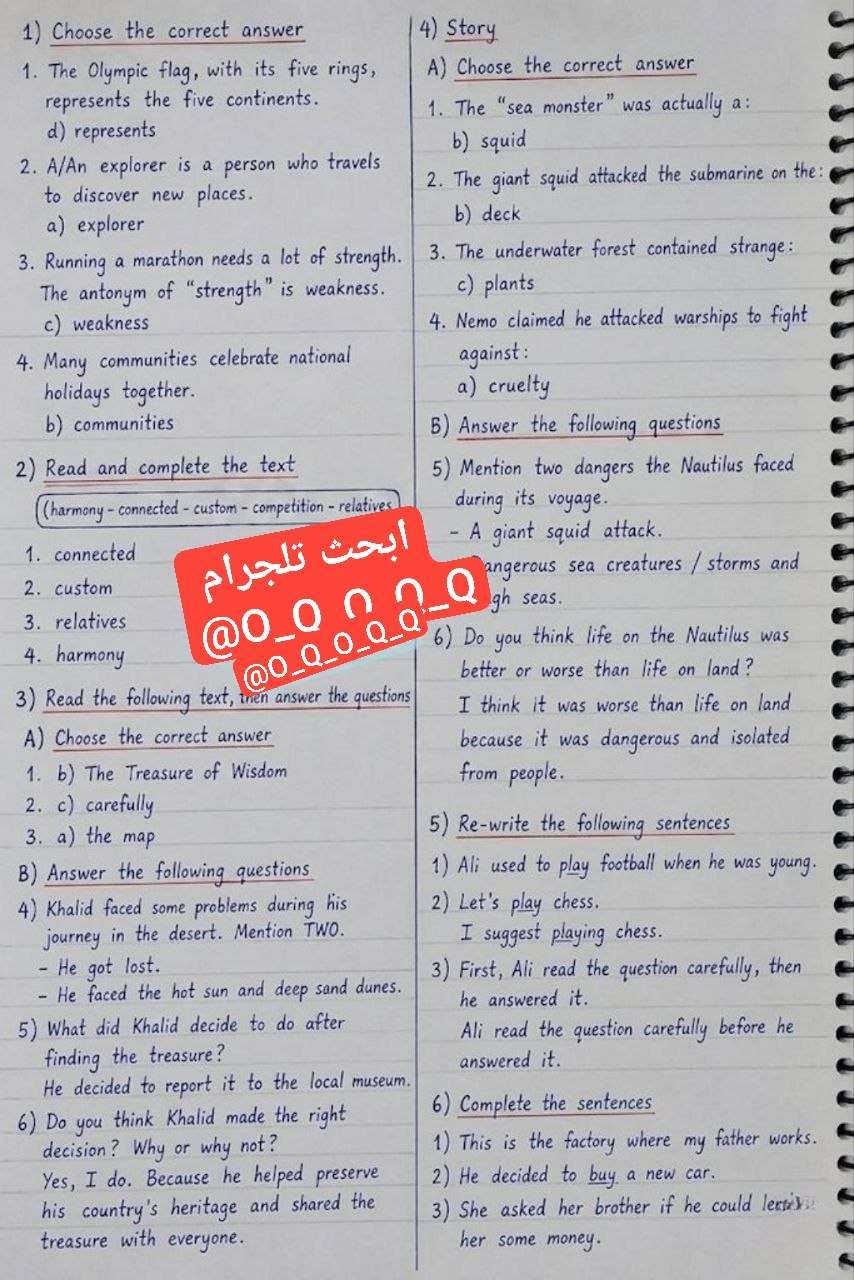 1) Choose the correct answer
1. The Olympic flag, with its five rings,
represents the five continents.
d) represents
2. A/An explorer is a person who travels
to discover new places.
a) explorer
3. Running a marathon needs a lot of strength.
The antonym of "strength" is weakness.
c) weakness
4. Many communities celebrate national
holidays together.
b) communities
2) Read and complete the text
(harmony - connected - custom - competition - relatives
1. connected
2. custom
3. relatives
4. harmony
ابحث تلجرام
@O_Q_O_Q_Q
3) Read the following text, then answer the questions
A) Choose the correct answer
1. b) The Treasure of Wisdom
2. c) carefully
3. a) the map
B) Answer the following questions
4) Khalid faced some problems during his
journey in the desert. Mention TWO.
- He got lost.
- He faced the hot sun and deep sand dunes.
5) What did Khalid decide to do after
finding the treasure?
He decided to report it to the local museum.
6) Do you think Khalid made the right
decision? Why or why not?
Yes, I do. Because he helped preserve
his country's heritage and shared the
treasure with everyone.
4) Story
A) Choose the correct answer
1. The "sea monster" was actually a:
b) squid
2. The giant squid attacked the submarine on the:
b) deck
3. The underwater forest contained strange:
c) plants
4. Nemo claimed he attacked warships to fight
against:
a) cruelty
B) Answer the following questions
5) Mention two dangers the Nautilus faced
during its voyage.
- A giant squid attack.
angerous sea creatures / storms and
gh seas.
6) Do you think life on the Nautilus was
better or worse than life on land?
I think it was worse than life on land
because it was dangerous and isolated
from people.
5) Re-write the following sentences
1) Ali used to play football when he was young.
2) Let's play chess.
I suggest playing chess.
3) First, Ali read the question carefully, then
he answered it.
Ali read the question carefully before he
answered it.
6) Complete the sentences
1) This is the factory where my father works.
2) He decided to buy a new car.
3) She asked her brother if he could
her some money.